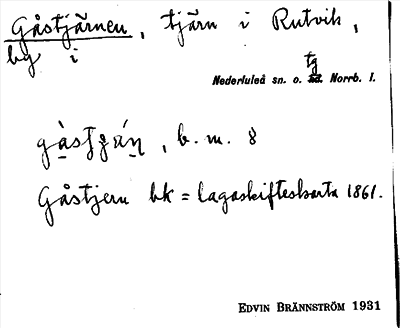 Gåstjärnen, tjärn i Rutvik,
by i
Nederluleå sn. o. tg Norrb. l.
b. m. 8
Gåstjern bk = lagaskifteskarta 1861.
EDVIN BRÄNNSTRÖM 1931